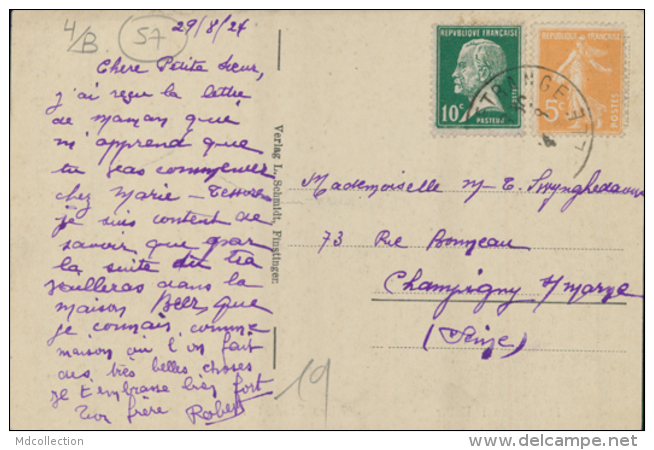 4/B
57
29/8/24
Chere Petite Sœur,
j'ai reçu la lettre
de maman qui
m'apprend que
tu vas commencer
chez Marie-
je suis content de
savoir que par
la suite tu
dans la
maison Beer que
je connais comme
maison où l'on fait
des très belles choses
je t'embrasse bien fort
Ton frère Robert
Verlag L. Schmidt, Finstinger.
REPUBLIQUE FRANÇAISE
10c
PASTEUR
REPUBLIQUE FRANÇAISE
5c
POSTES
Mademoiselle M-T.
73 Rue
Champigny s/marne
(Seine)
19
Mdcollection
http://www.delcampe.net